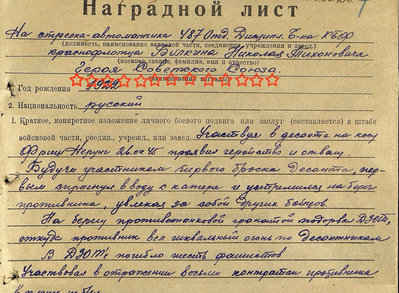 Наградной лист
На стрелка-автоматчика 487 Отд. Дисципл. Б-на КБФ
(должность, наименование войсковой части, соединения, учреждения и завед.)
краснофлотца Вилкина Николая Тихоновича
(военное звание, фамилия, имя и отчество)
Героя Советского Союза.
1. Год рождения
2. Национальность русский
I. Краткое, конкретное изложение личного боевого подвига или заслуг (составляется) в штабе
войсковой части, соедин., учрежд., или завед. Участвуя в десанте на косу
Фриш Нерунг 26.04.45 проявил геройство и отвагу.
Будучи участником первого броска Десанта, пер-
вым спрыгнул в воду с катера и устремился на берег
противника, увлекая за собой других бойцов.
На берегу противотанковой гранатой подорвал ДЗОТ,
откуда противник вел шквальный огонь по десантникам
В ДЗОТе погибло шесть фашистов.
Участвовал в отражении восьми контратак противника